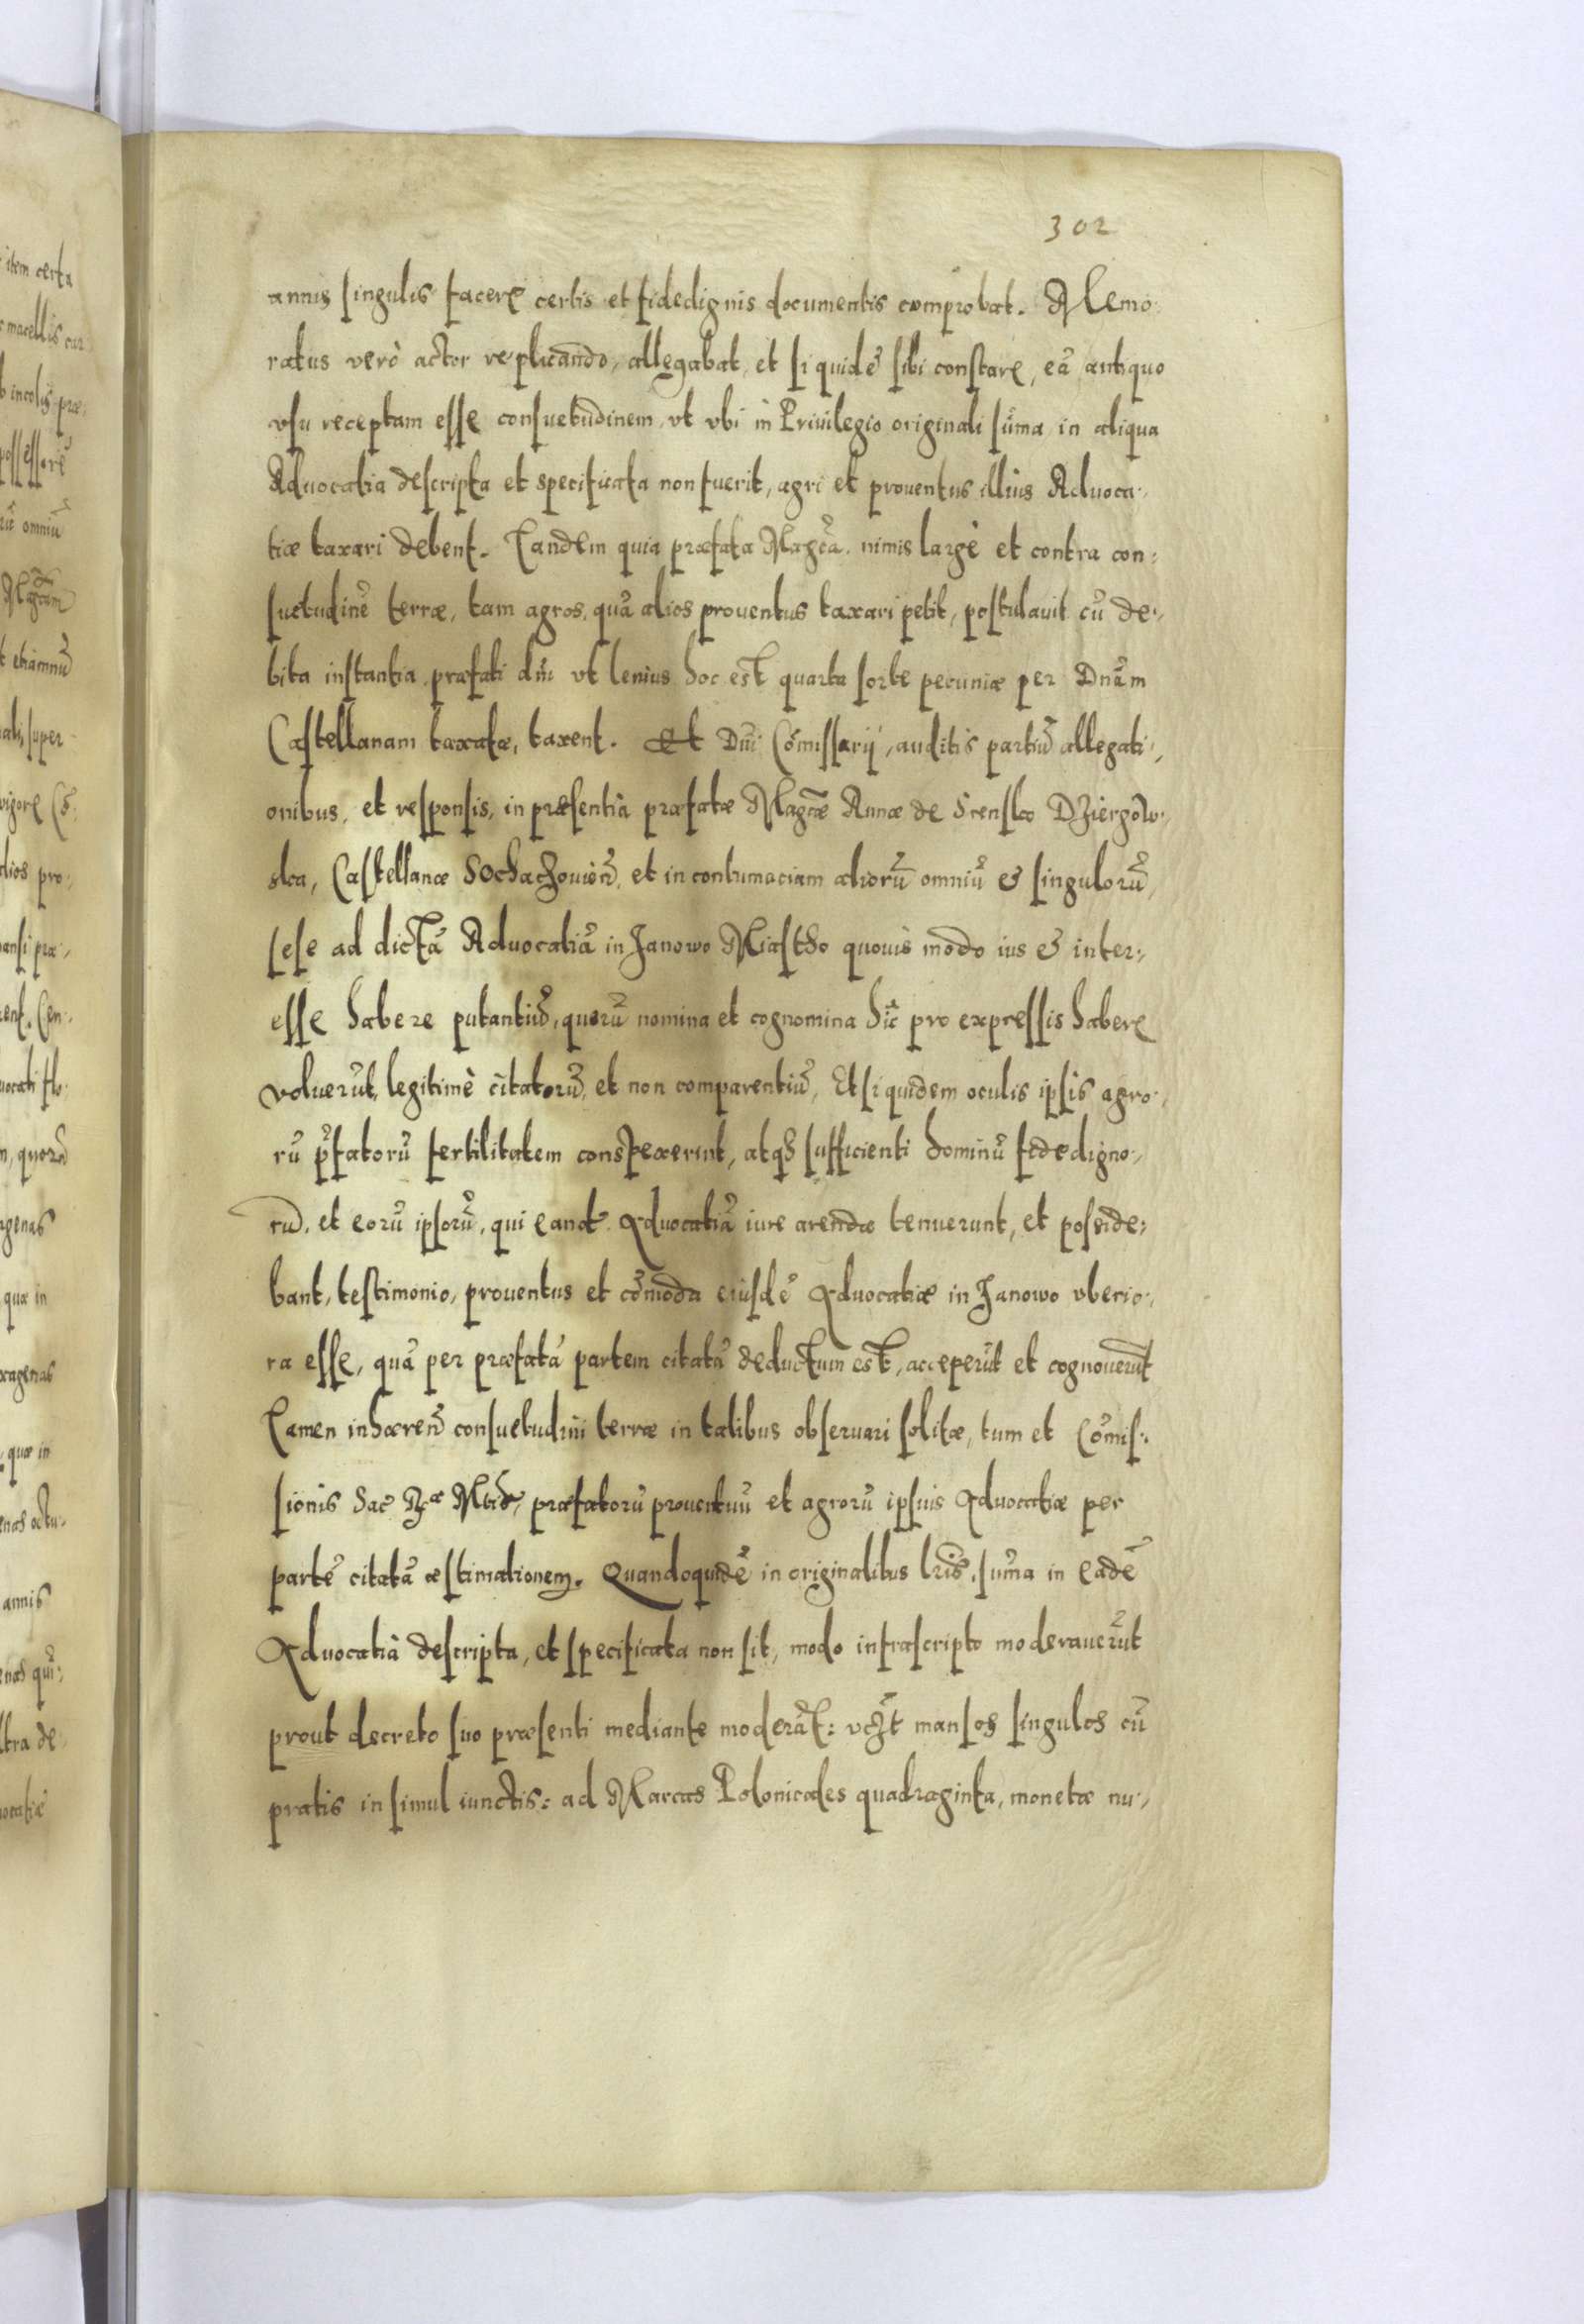 302
annis singulis facere certis et fidedignis documentis comprobat. Memo:
ratus verò actor replicando, allegabat, et siquidẽ sibi constare, eã antiquo
vsu receptam esse consuetudinem, vt vbi in Priuilegio originali sũma in aliqua
Aduocatia descripta et specificata non fuerit, agri et prouentus illius Aduoca:
tiæ taxari debent. Tandem quia præfata Magcã. nimis largè et contra con:
suetudinẽ terræ, tam agros, quã alios prouentus taxari petit, postulauit cũ de:
bita instantia præfati dñi vt lenius hoc est quarta sorte pecuniæ per Dnãm
Castellanam taxatæ, taxent. Et Dñi Cõmissarij, auditis partiũ allegati:
onibus, et responsis, in præsentia præfatæ Magcæ Annæ de Srensko Dzierzgow:
ska, Castellanæ Sochaczouien̄, et in contumaciam aliorũ omniũ & singulorũ,
sese ad dictã Aduocatiã in Janowo Miastho quouis modo ius & inter:
esse habere putantiũ, quorũ nomina et cognomina hîc pro expressis habere
voluerũt, legitimè citatorũ, et non comparentiũ, Et siquidem oculis ipsis agro:
rũ p̃fatorũ fertilitatem conspexerint, atqȝ sufficienti hominũ fidedigno:
rũ, et eorũ ipsorũ, qui eand Aduocatiã iure arendæ tenuerunt, et posside:
bant, testimonio, prouentus et cõmoda eiusdẽ Aduocatiæ in Janowo vberio:
ra esse, quã per præfatã partem citatã deductum est, acceperũt et cognouerũt
Tamen inhæren̄ consuetudini terræ in talibus obseruari solitæ, tum et Cõmis:
sionis Sac Rᵉ Mtis, præfatorũ prouentuũ et agrorũ ipsius Aduocatiæ per
partẽ citatã æstimationem. Quandoquidẽ in originalibus lr̃is, sũma in eadẽ
Aduocatia descripta, et specificata non sit, modo infrascripto moderauerũt
prout decreto suo præsenti mediante moderãt: vcȝt mansos singulos cũ
pratis insimul iunctis: ad Marcas Polonicales quadraginta, monetæ nu: